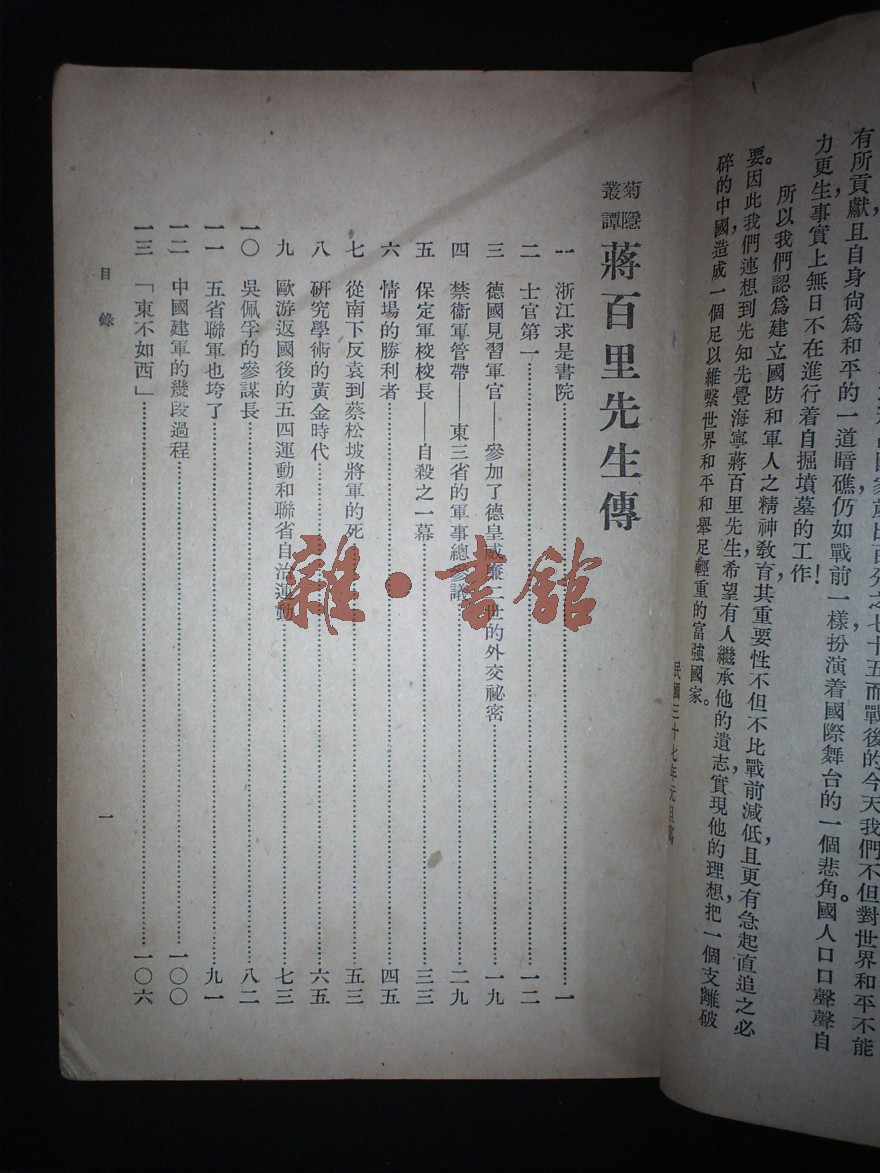 有所貢獻，且自身尙爲和平的一道暗礁，仍如戰前一樣，扮演着國際舞台的一個悲角。國人口口聲聲自
力更生，事實上無日不在進行着自掘墳墓的工作！
所以我們認爲建立國防和軍人之精神敎育，其重要性不但不比戰前減低，且更有急起直追之必
要。因此我們連想到先知先覺海寧蔣百里先生，希望有人繼承他的遺志，實現他的理想，把一個支離破
碎的中國，造成一個足以維繫世界和平和舉足輕重的富強國家。
民國三十七年元旦
菊隱叢譚 蔣百里先生傳
一 浙江求是書院……一
二 士官第一……一二
三 德國見習軍官——參加了德皇威廉二世的外交祕密……一九
四 禁衞軍管帶——東三省的軍事總參議……二九
五 保定軍校校長——自殺之一幕……三三
六 情場的勝利者……四五
七 從南下反袁到蔡松坡將軍的死……五三
八 硏究學術的黃金時代……六五
九 歐游返國後的五四運動和聯省自治運動……七三
一〇 吳佩孚的參謀長……八二
一一 五省聯軍也垮了……九一
一二 中國建軍的幾段過程……一〇〇
一三 「東不如西」……一〇六
目錄
一
雜·書館